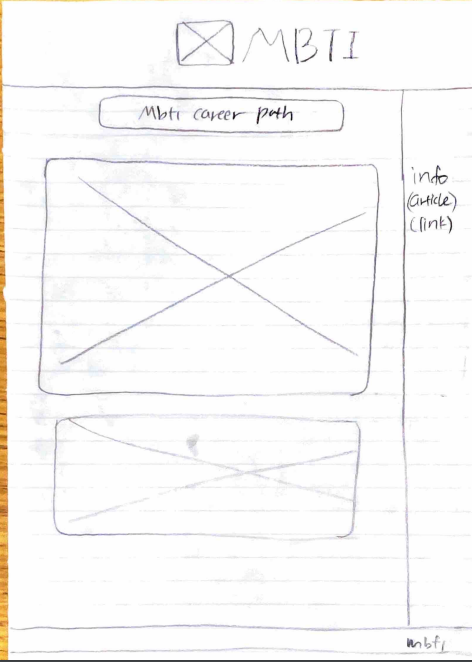 MBTI
Mbti career path
info
(article)
(link)
mbti